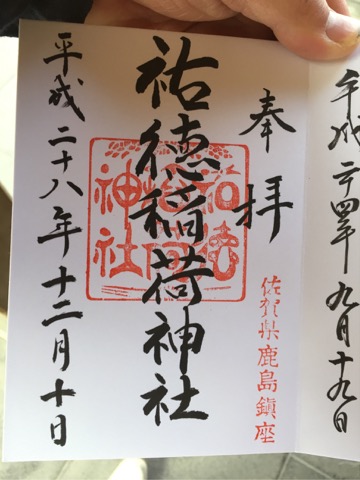 平成二十四年九月十九日
奉拝
佐賀県鹿島鎮座
祐徳稲荷神社
祐徳稲荷神社
平成二十八年十二月十日